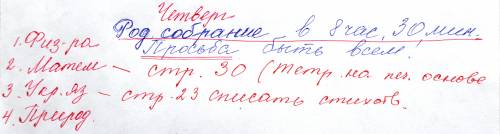 Четверг
Род собрание в 8 час. 30 мин.
Просьба быть всем!
1. Физ-ра
2. Матем – стр. 30 (тетр. на печ. основе
3. Укр. яз – стр. 23 списать стихотв.
4. Природ.